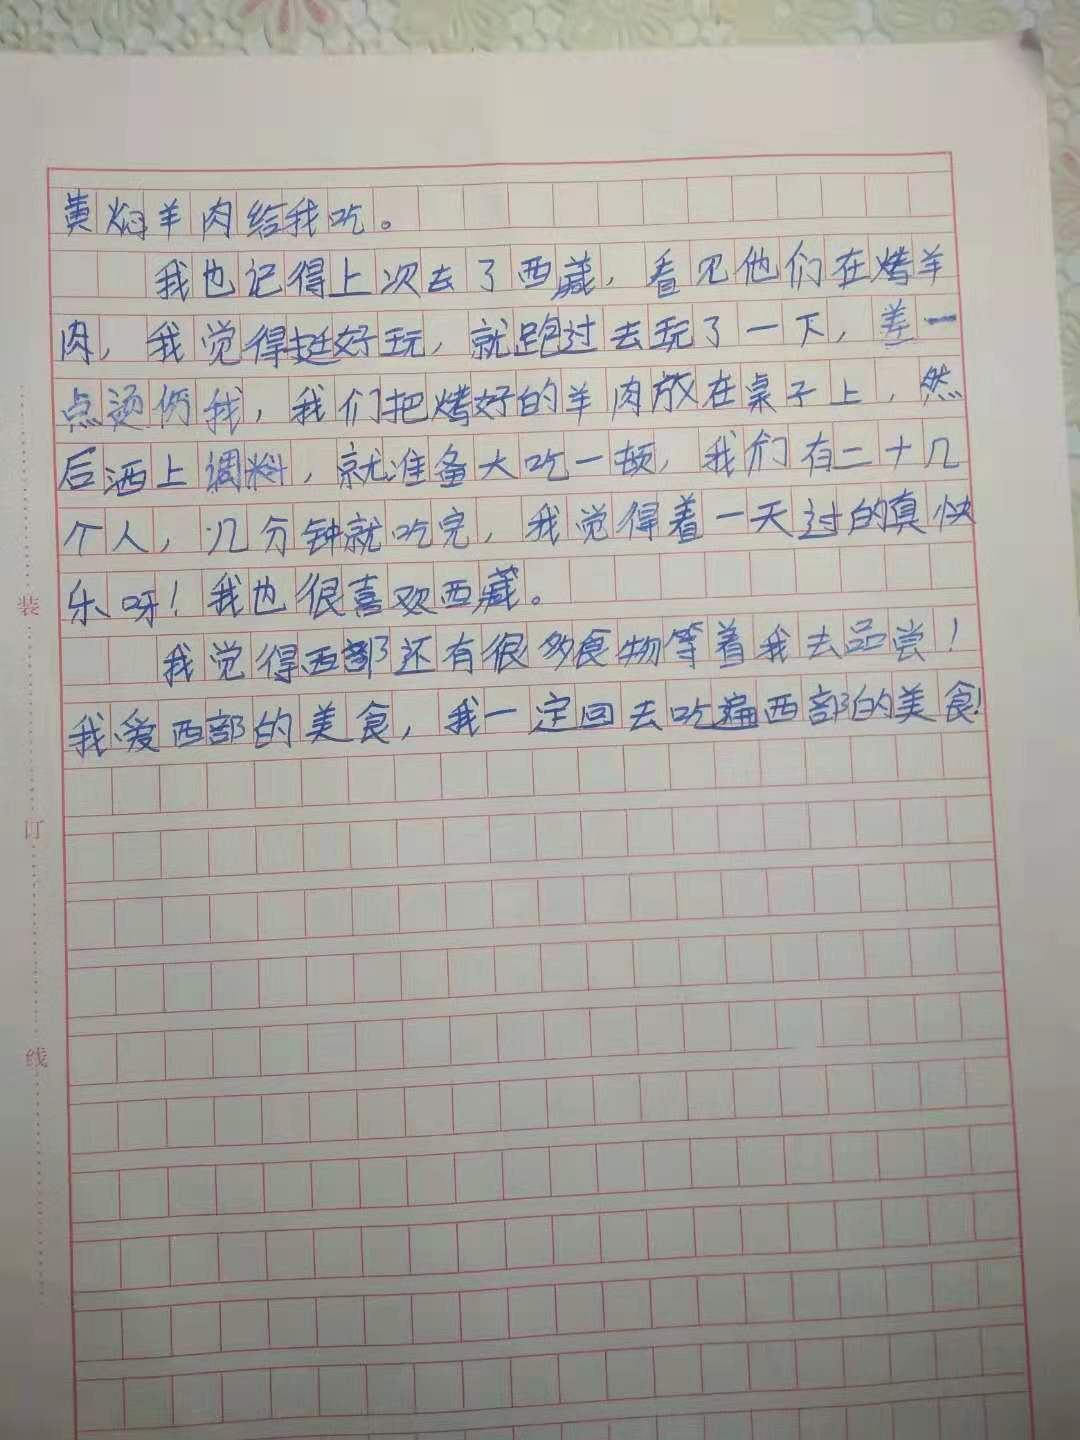 黄焖羊肉给我吃。
我也记得上次去了西藏，看见他们在烤羊
肉，我觉得挺好玩，就跑过去玩了一下，差一
点烫伤我，我们把烤好的羊肉放在桌子上，然
后洒上调料，就准备大吃一顿，我们有二十几
个人，几分钟就吃完，我觉得着一天过的真快
乐呀！我也很喜欢西藏。
我觉得西部还有很多食物等着我去品尝！
我爱西部的美食，我一定回去吃遍西部的美食！
装
订
线